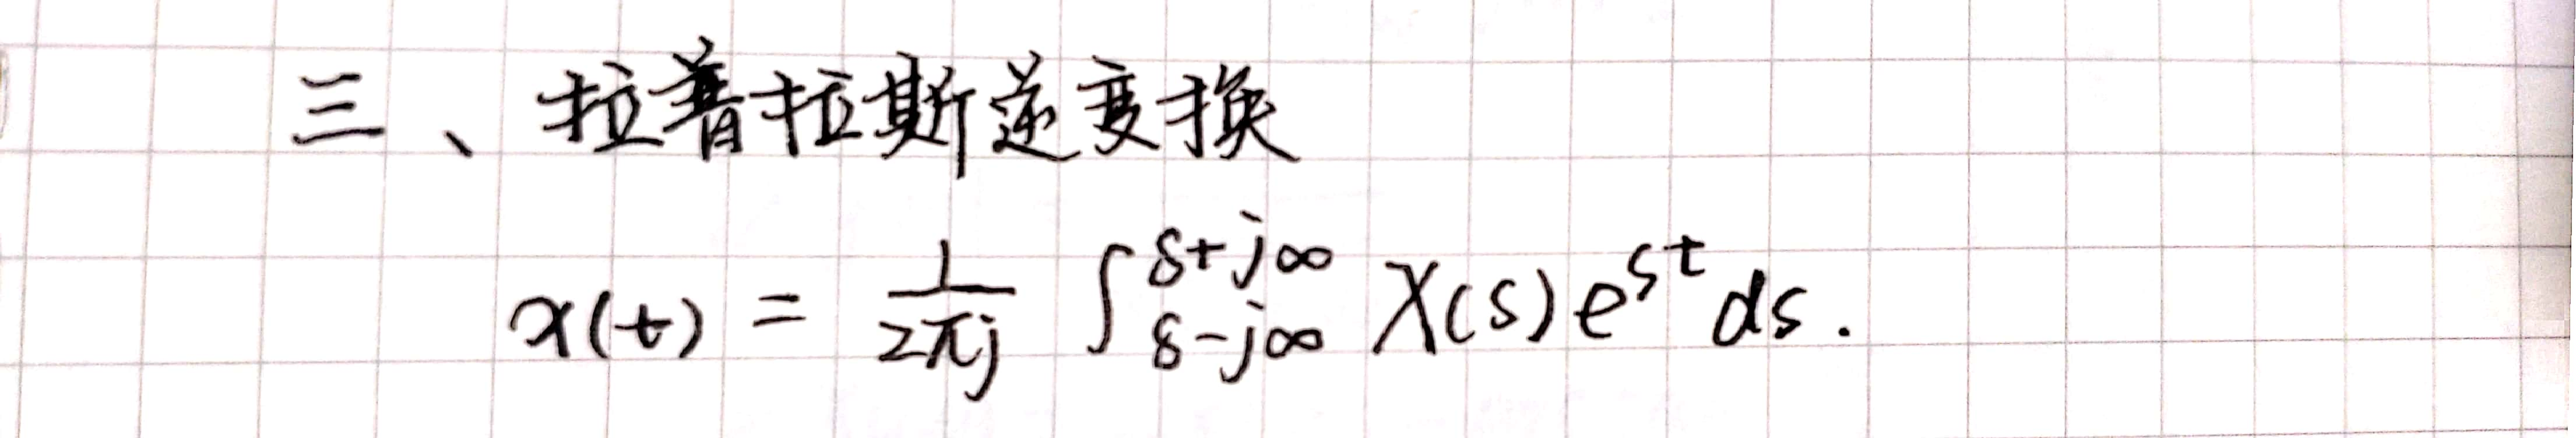 三、拉普拉斯逆变换
x(t) = \frac{1}{2πj} ∫_{δ-j∞}^{δ+j∞} X(s)e^{st}ds.